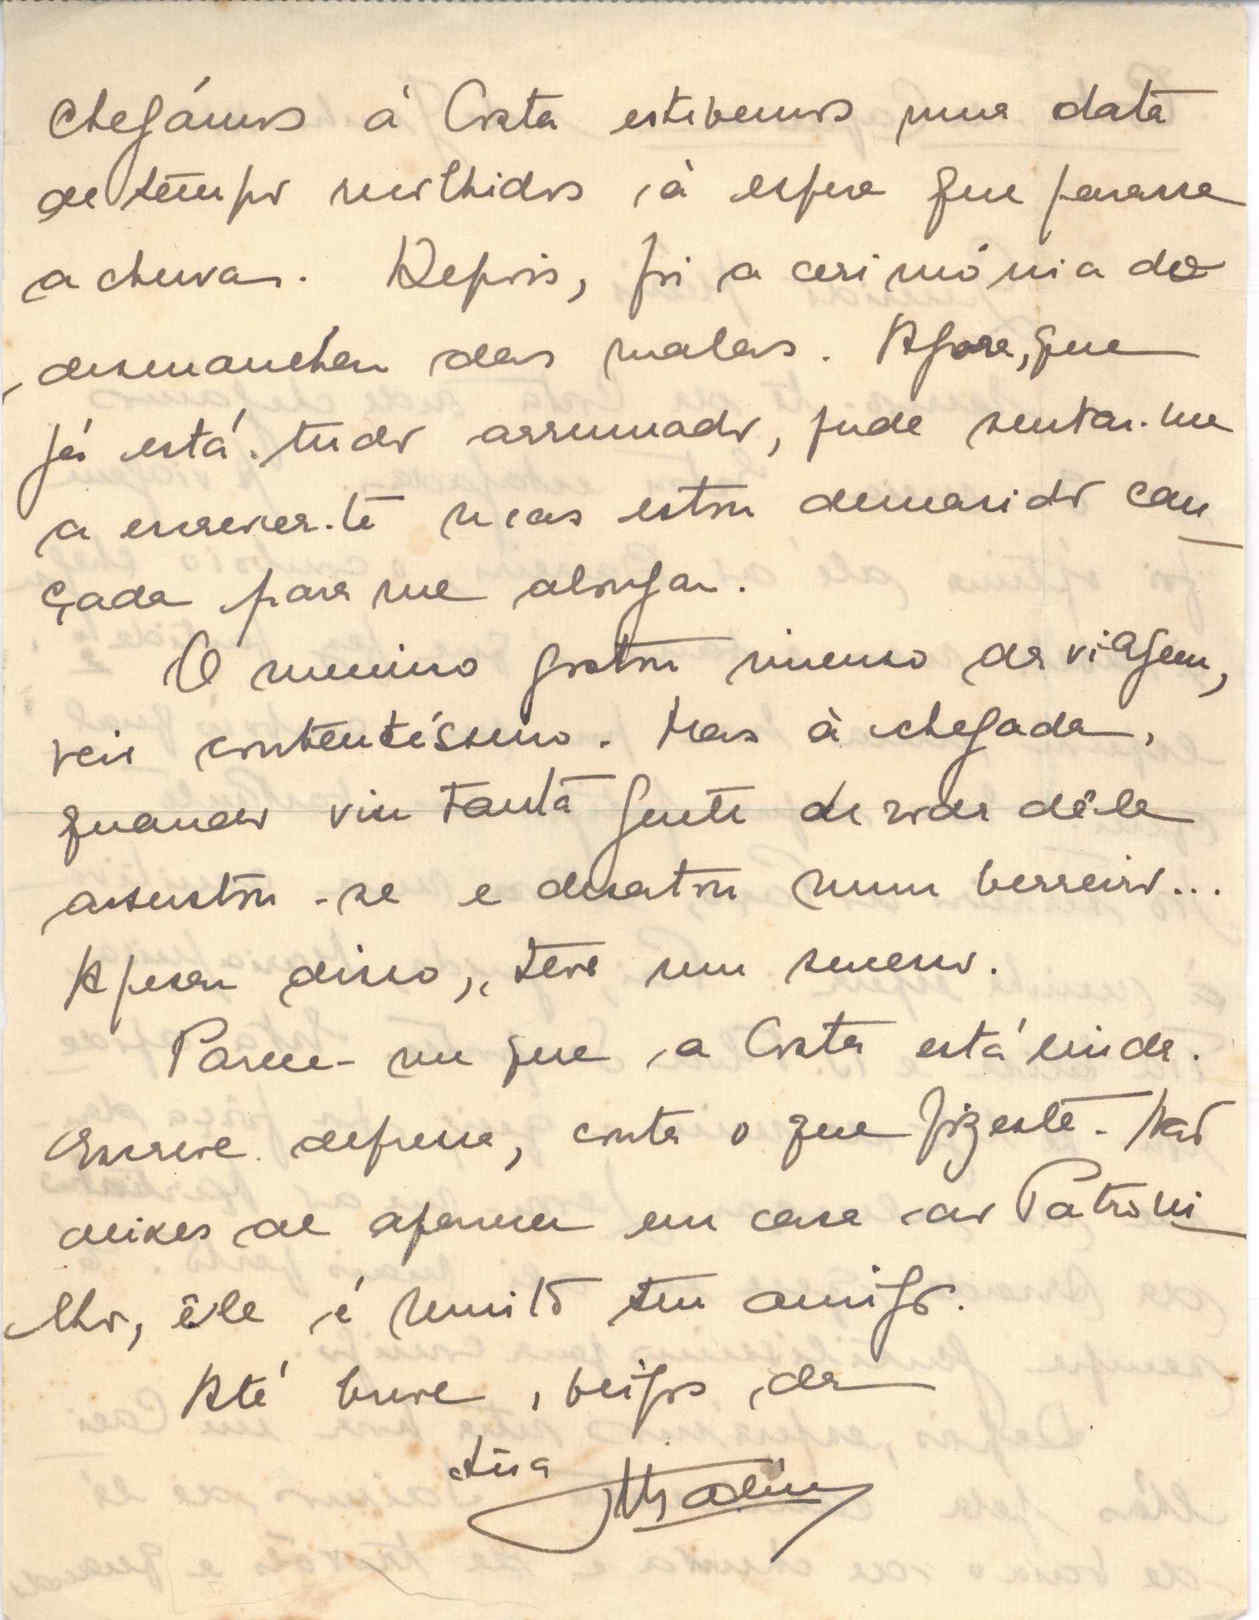 chegámos à Costa estivemos uma data
de tempo recolhidos, à espera que parasse
a chuva. Depois, foi a cerimónia do
desmanchar das malas. Agora, que
já está tudo arrumado, pude sentar-me
a escrever-te mas estou demasiado can
çada para me alongar.
O menino gostou imenso da viagem,
veio contentíssimo. Mas à chegada,
quando viu tanta gente de roda dêle
assustou-se e desatou num berreiro...
Apesar disso, teve um sucesso.
Parece-me que a Costa está linda.
Escreve depressa, conta o que fizeste. Não
deixes de aparecer em casa do Patroni
lho, êle é muito teu amigo.
Até breve, beijos da
tua